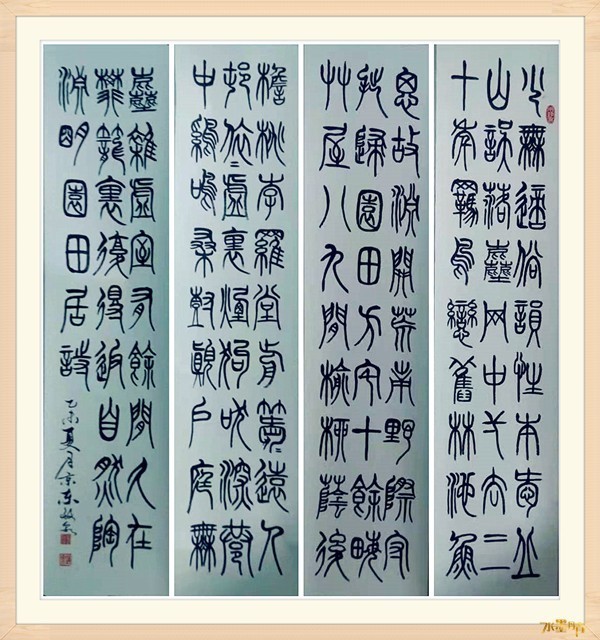 少無適俗韻性本愛丘
山誤落塵网中弌去三
十年羈鳥戀舊林池魚
思故淵開荒南野際守
拙歸園田方宅十餘畝
艸屋八九閒榆柳蔭後
檐桃李羅堂前曖〻遠人
邨依〻虛裏煙狗吠深巷
中鷄鳴桑樹顛戶庭無
塵雜虛室有餘閒久在
樊籠裏復得返自然陶
淵明園田居詩
乙未夏月京东
水墨丹青